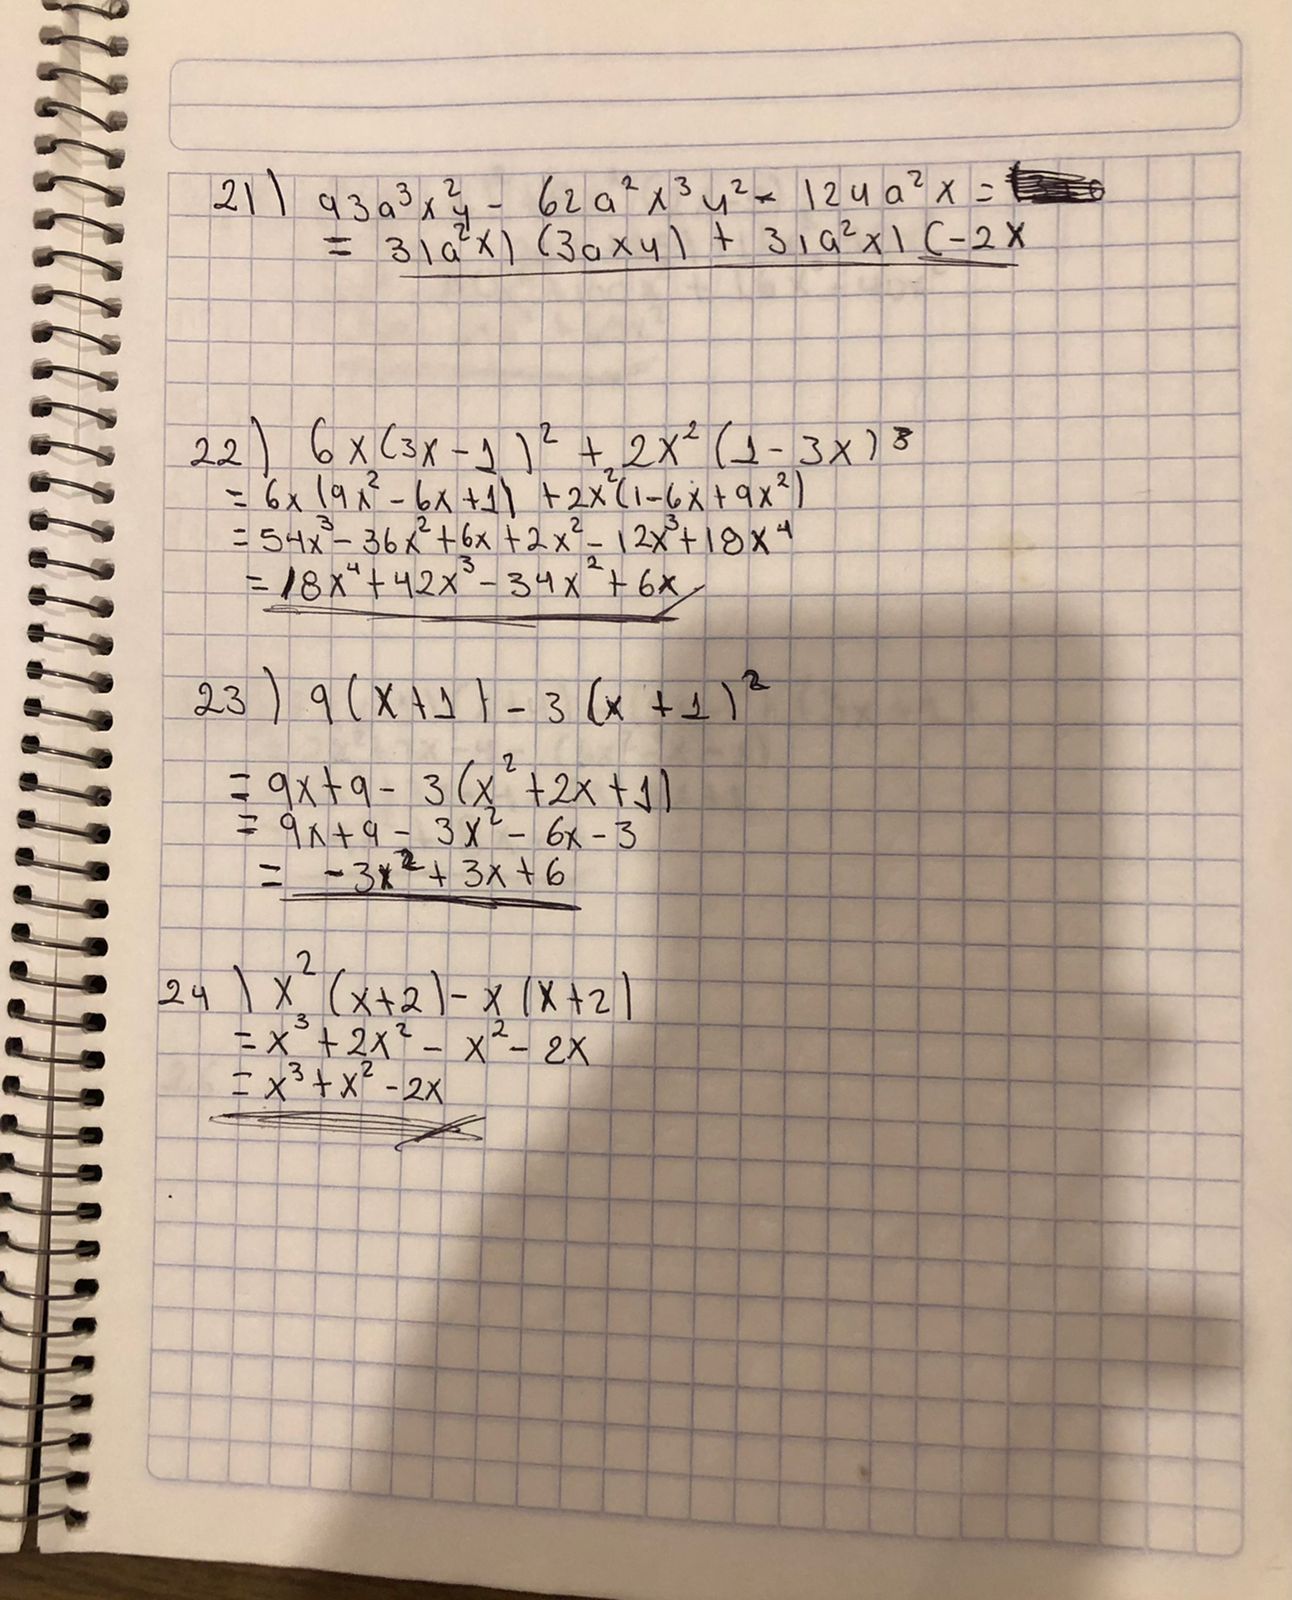 21) 93a³x²y - 62a²x³y² - 124a²x =
= 31a²x) (3axy) + 31a²x) (-2x
22) 6x(3x-1)² + 2x²(1-3x)³
= 6x(9x² - 6x+1) + 2x²(1-6x+9x²)
= 54x³ - 36x² + 6x + 2x² - 12x³ + 18x⁴
= 18x⁴ + 42x³ - 34x² + 6x
23) 9(x+1) - 3(x+1)²
= 9x+9 - 3(x² + 2x+1)
= 9x+9 - 3x² - 6x - 3
= -3x² + 3x + 6
24) x²(x+2) - x(x+2)
= x³ + 2x² - x² - 2x
= x³ + x² - 2x